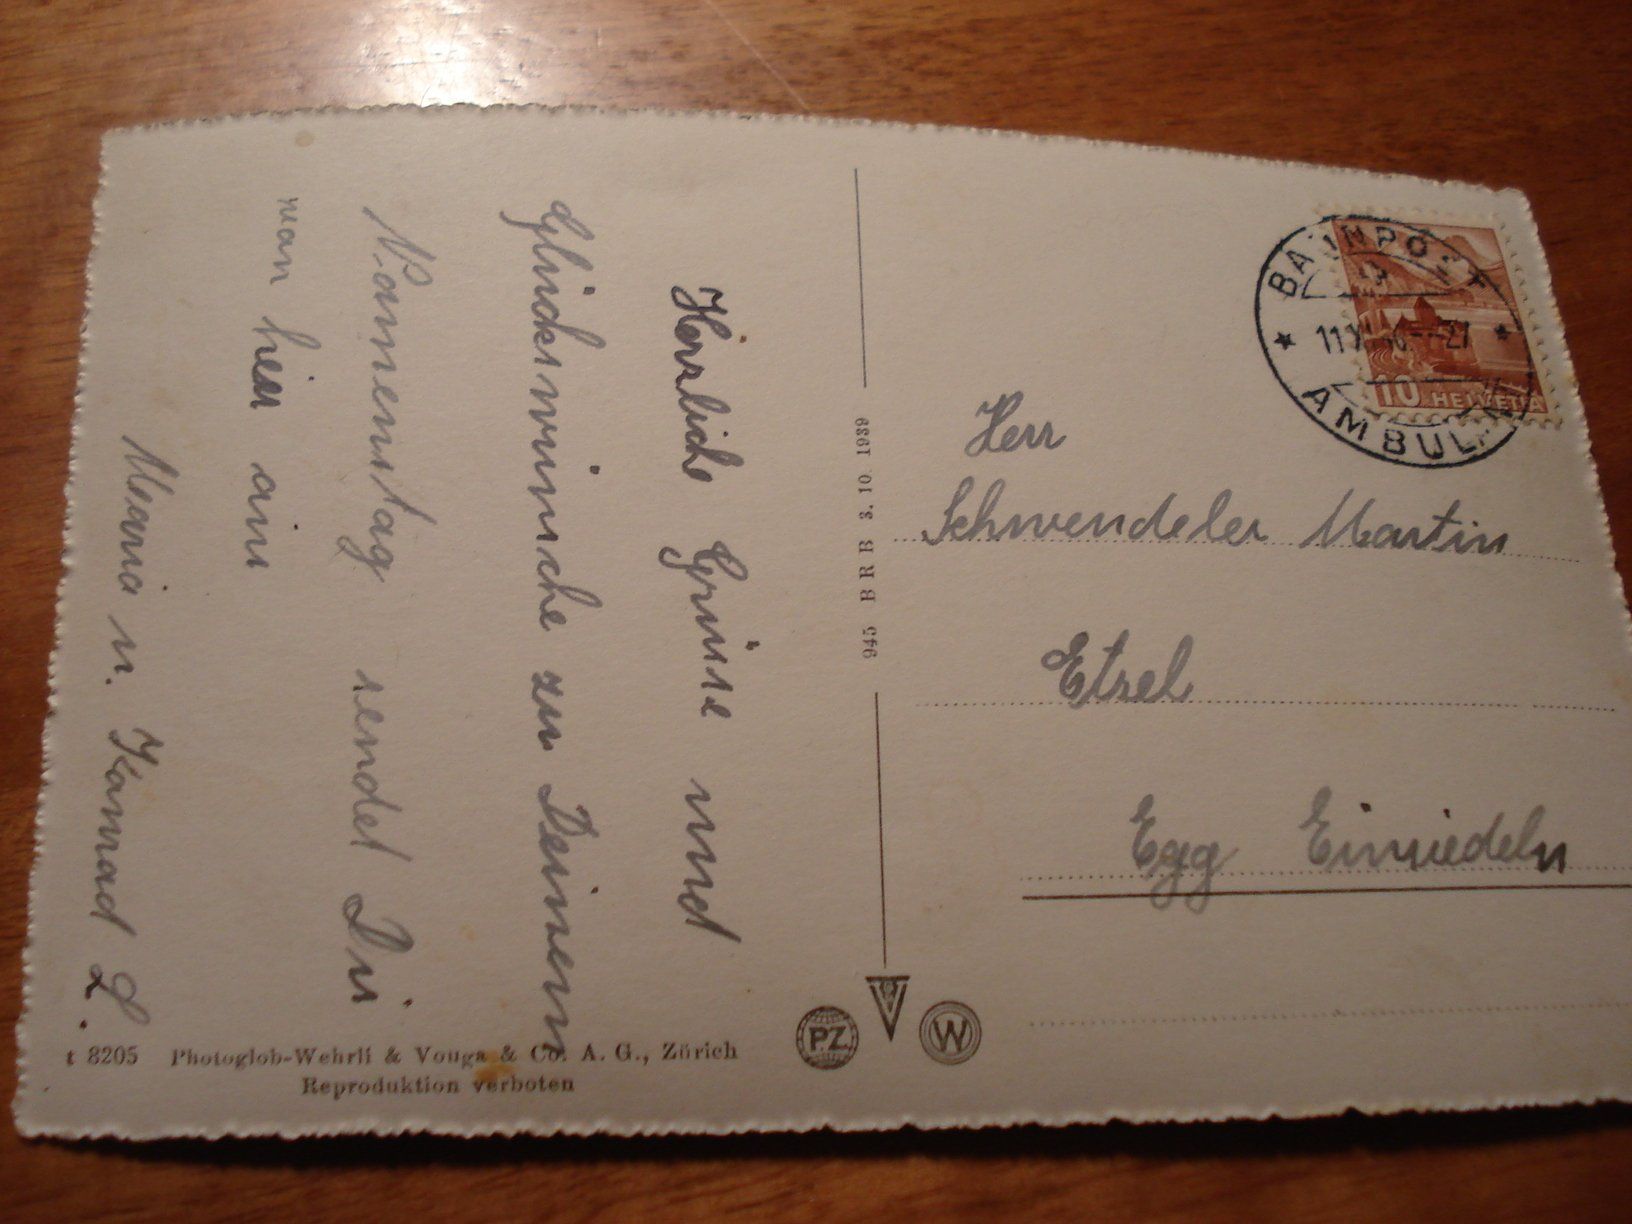 Herrliche Grüsse und
Glückswünsche zu Deinem
Namenstag sendet Dir
von hier aus
Maria u. Konrad L.
945 BRB 3.10.1939
BAHNPOST
11 XI 46 - 27
AMBULANT
10 HELVETIA
Herr
Schwendeler Martin
Etzel
Egg Einsiedeln
P.Z.
W
t 8205 Photoglob-Wehrli & Vouga & Co. A. G., Zürich
Reproduktion verboten